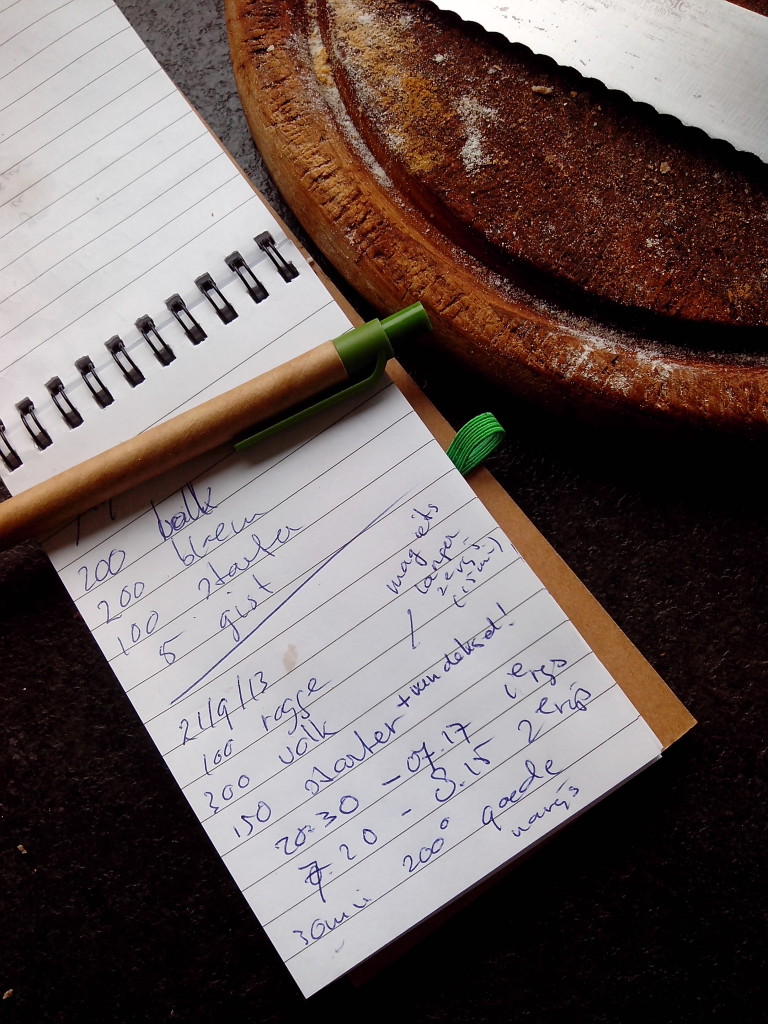 200 balk
200 bloem
100 starter
8 gist
21/9/13
100 rogge
300 volk
150 starter + van deksel!
mag iets
langer
2e rijs
(15 min)
20.30 - 07.17 1e rijs
7.20 - 8.15 2e rijs
30 min 200° goede
narijs